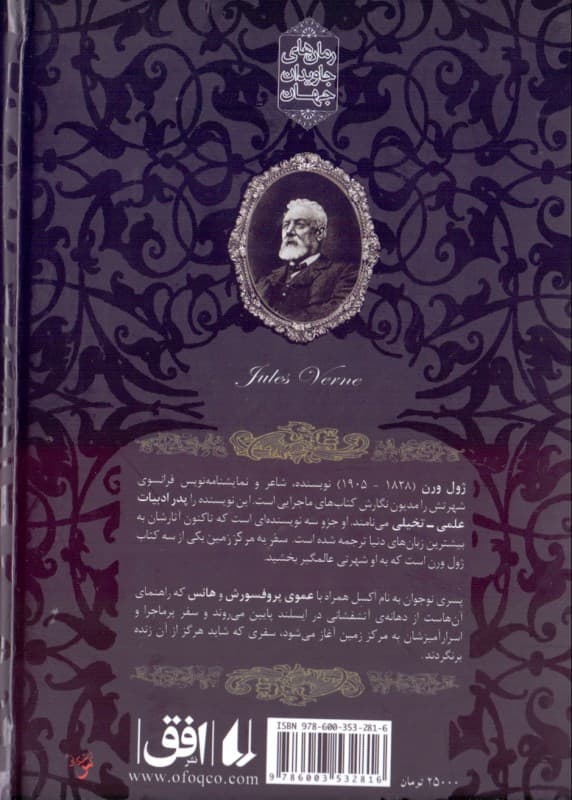 رمان‌های
جاویدان
جهان
Jules Verne
ژول ورن (۱۸۲۸ - ۱۹۰۵) نویسنده، شاعر و نمایشنامه‌نویس فرانسوی
شهرتش را مدیون نگارش کتاب‌های ماجرایی است. این نویسنده را پدر ادبیات
علمی ــ تخیلی می‌نامند. او جزو سه نویسنده‌ای است که تاکنون آثارشان به
بیشترین زبان‌های دنیا ترجمه شده است. سفر به مرکز زمین یکی از سه کتاب
ژول ورن است که به او شهرتی عالمگیر بخشید.
پسری نوجوان به نام اکسل همراه با عموی پروفسورش و هانس که راهنمای
آن‌هاست از دهانه‌ی آتشفشانی در ایسلند پایین می‌روند و سفر پرماجرا و
اسرارآمیزشان به مرکز زمین آغاز می‌شود، سفری که شاید هرگز از آن زنده
برنگردند.
نشر افق
www.ofoqco.com
ISBN 978-600-353-281-6
9 786003 532816
۲۵۰۰۰ تومان